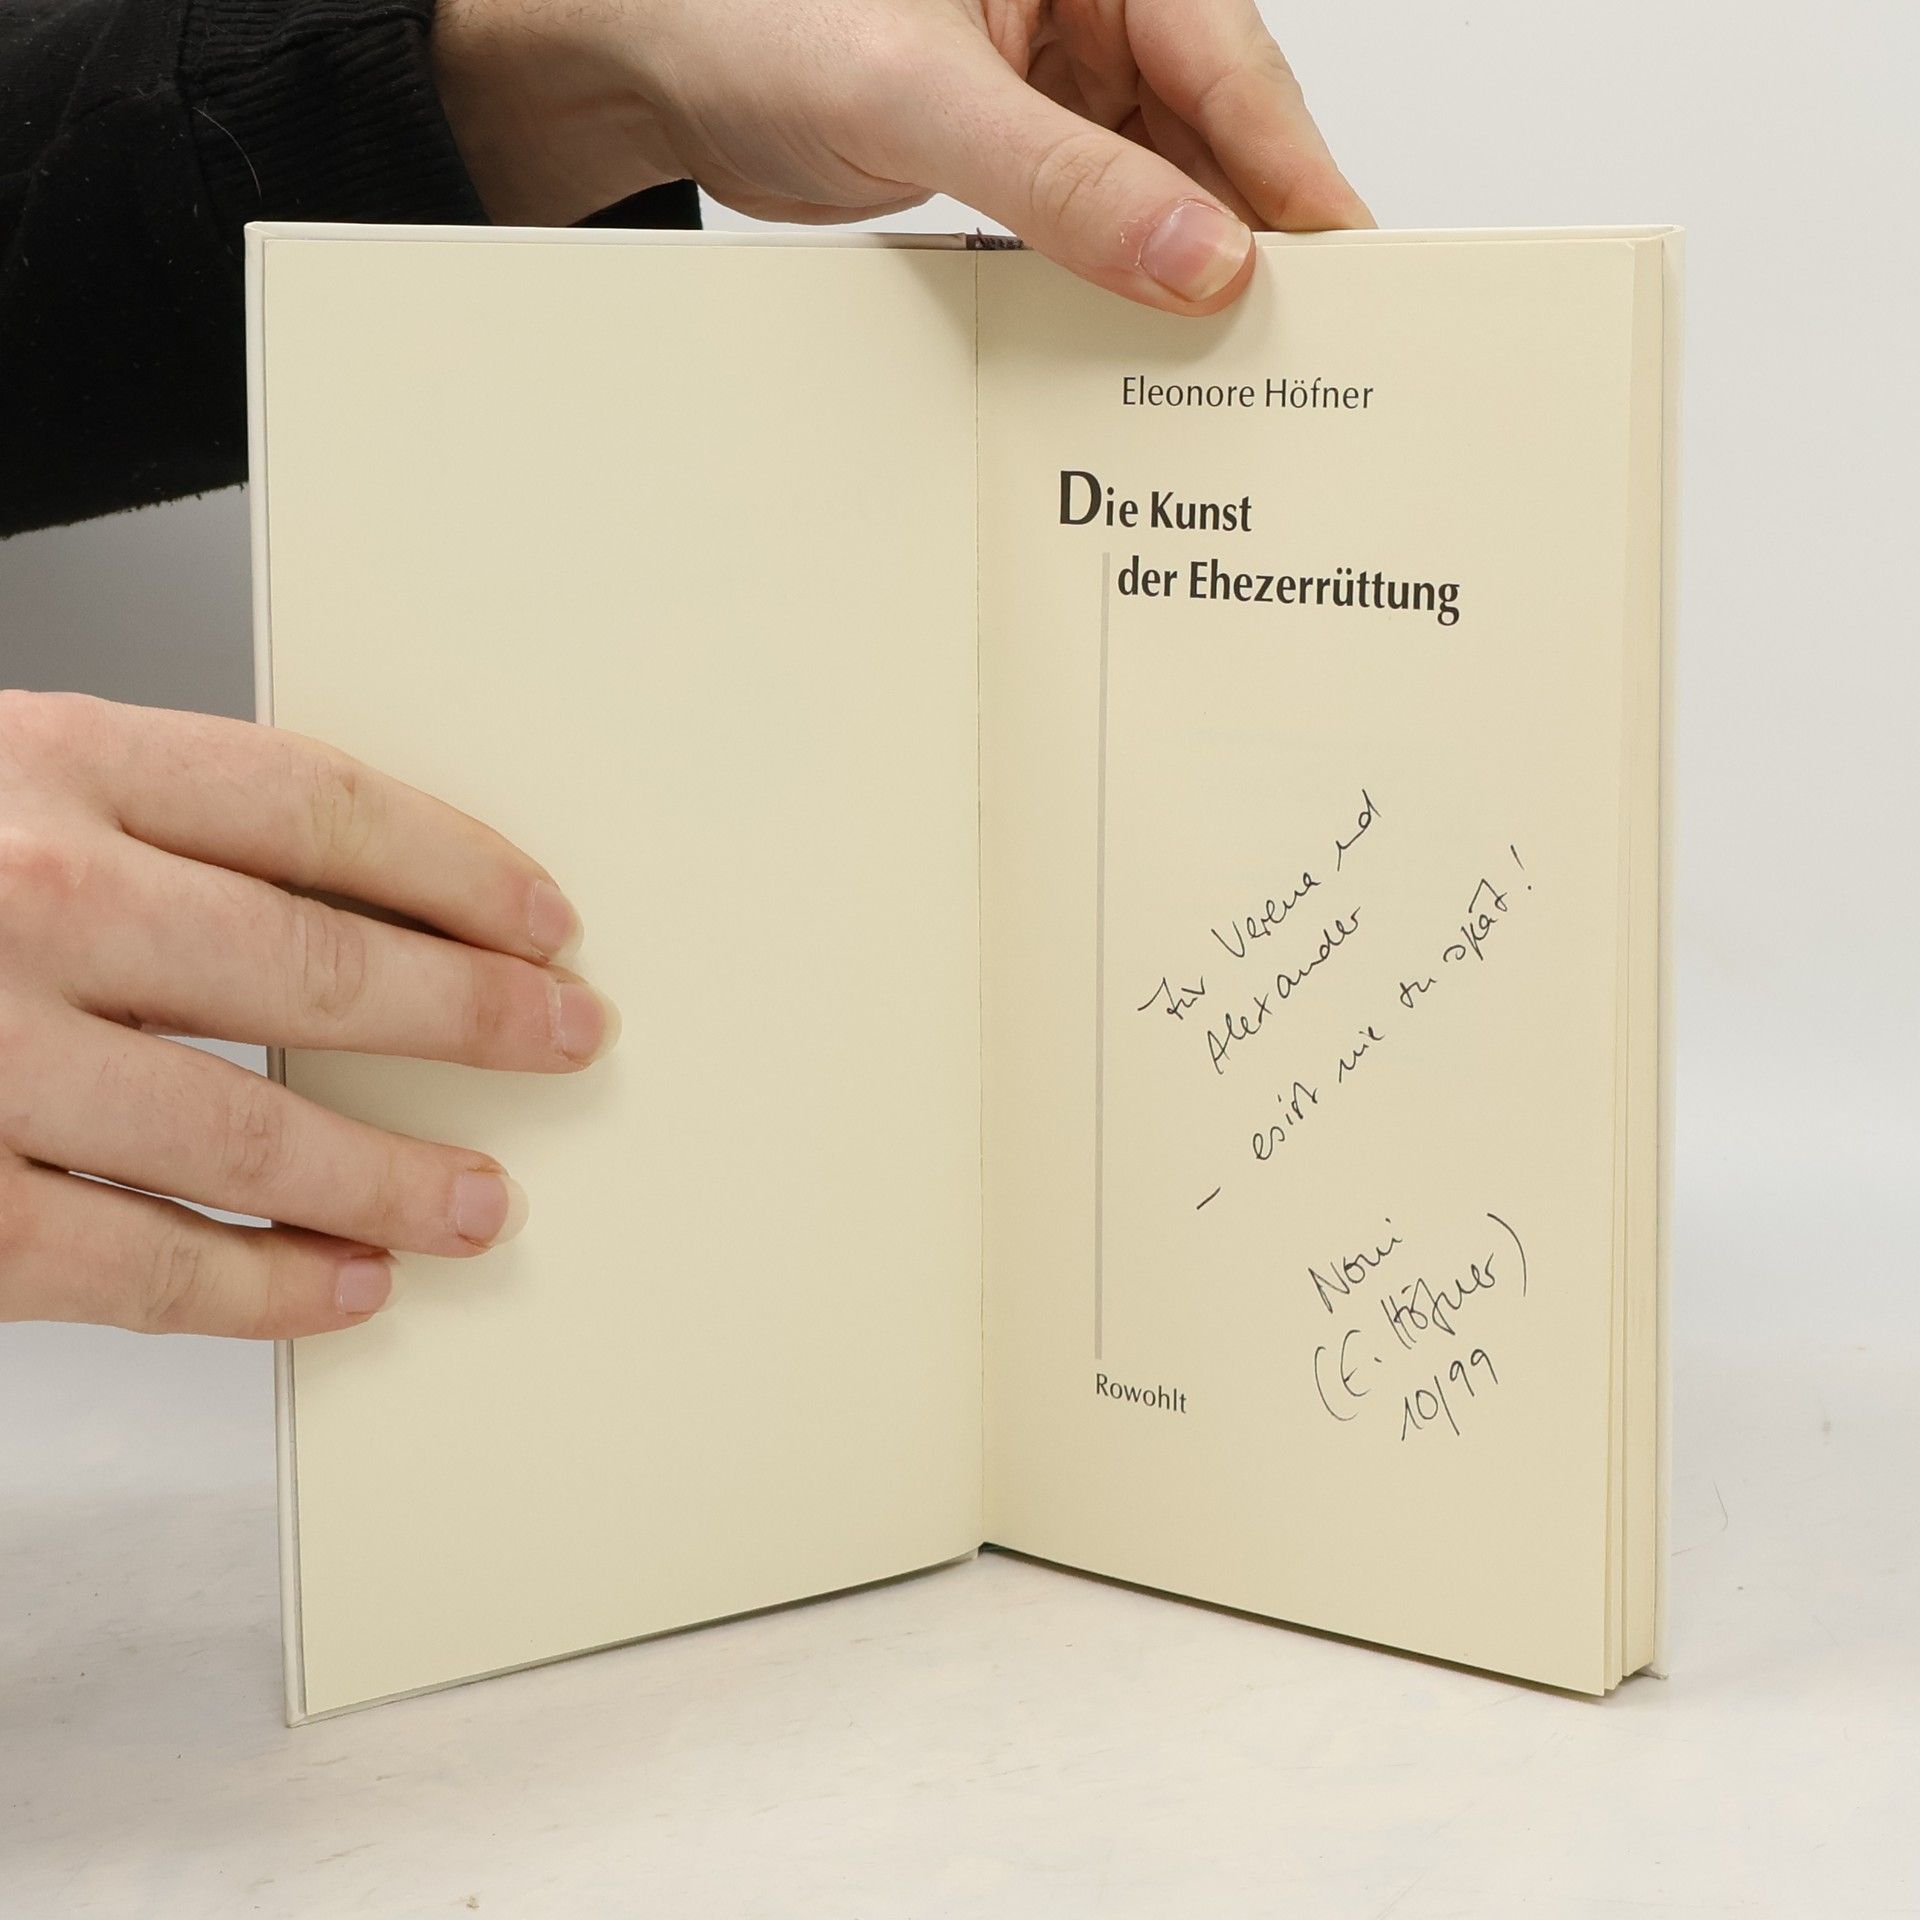 Eleonore Höfner
Die Kunst
der Ehezerrüttung
Für Verena und
Alexander
– es ist nie zu spät!
Noni
(E. Höfner)
10/99
Rowohlt